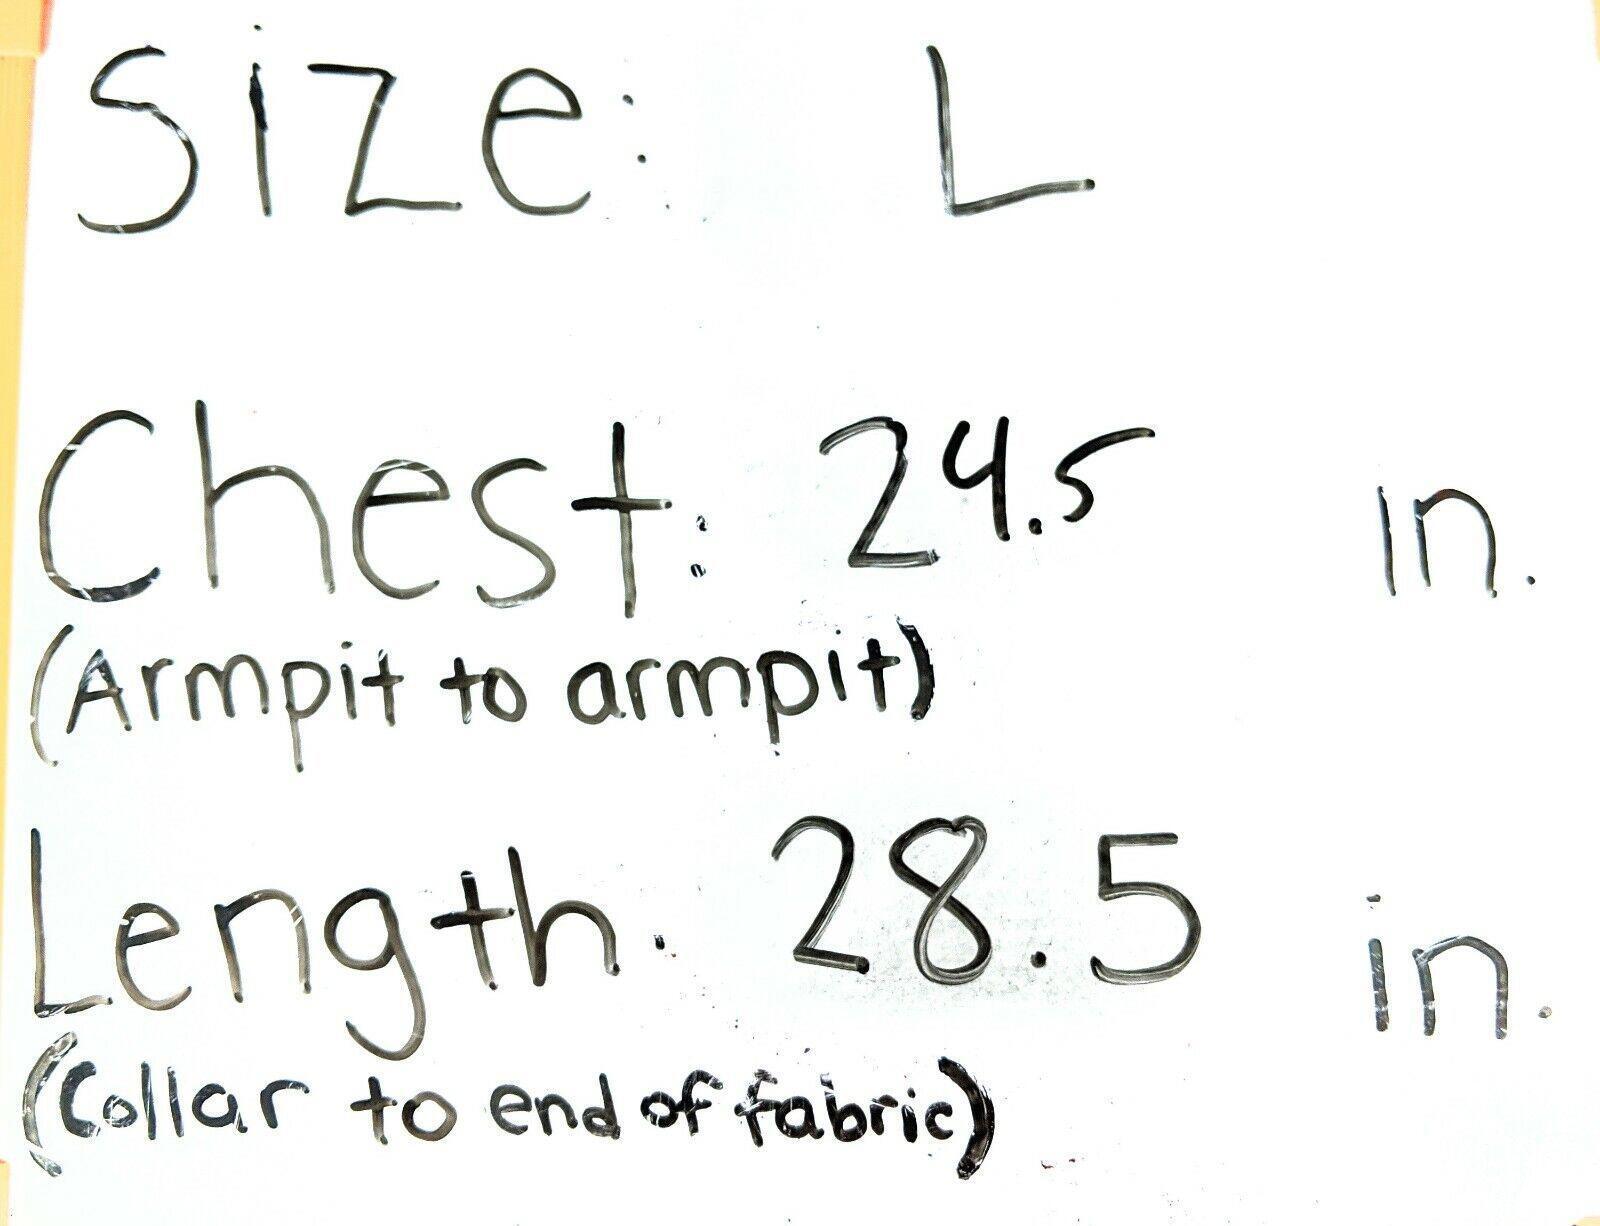 Size: L
Chest: 24.5 in.
(Armpit to armpit)
Length. 28.5 in.
(Collar to end of fabric)